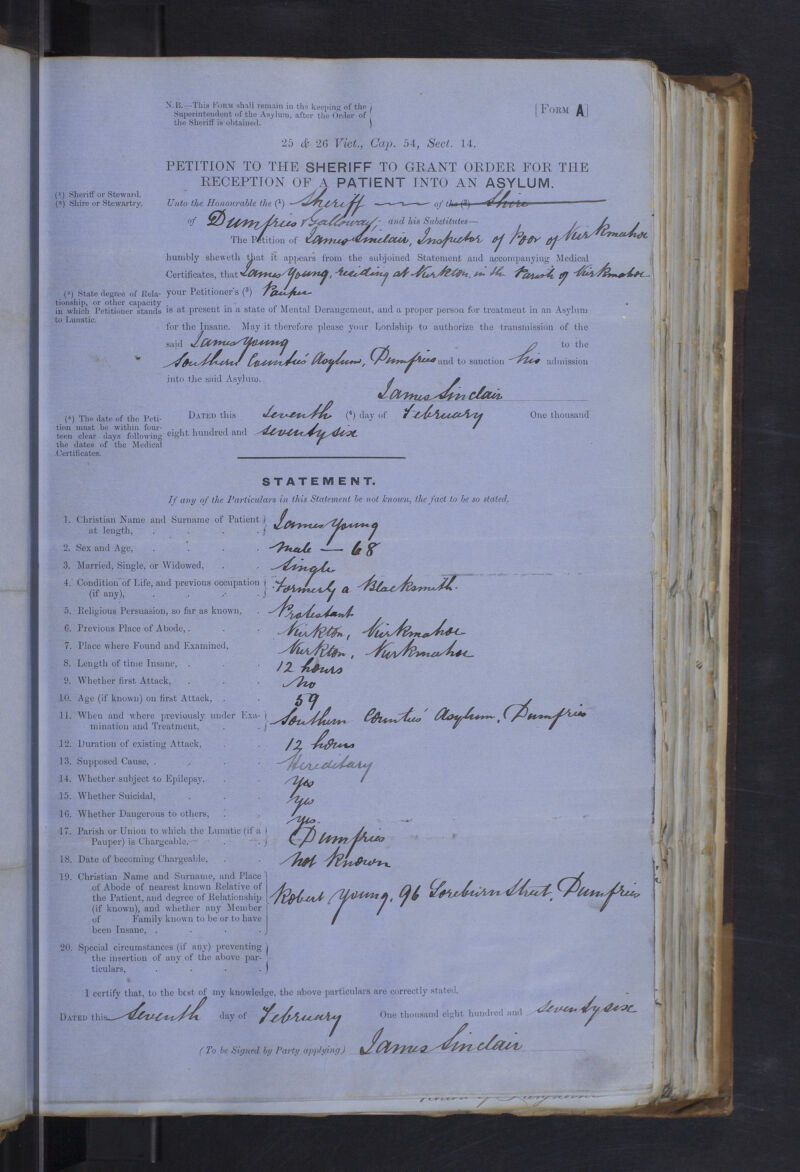 N.B.—This Form shall remain in the keeping of the
Superintendent of the Asylum, after the Order of
the Sheriff is obtained.
[Form A]
25 & 26 Vict., Cap. 54, Sect. 14.
PETITION TO THE SHERIFF TO GRANT ORDER FOR THE
RECEPTION OF A PATIENT INTO AN ASYLUM.
(¹) Sheriff or Steward.
(²) Shire or Stewartry.
Unto the Honourable the (¹) Sheriff of the (²) Shire
of Dumfries & Galloway, and his Substitutes—
The Petition of James Sinclair, Inspector of Poor of Kirkmahoe
humbly sheweth that it appears from the subjoined Statement and accompanying Medical
Certificates, that James Young, residing at Kirkton, in the Parish of Kirkmahoe
(³) State degree of Rela-
tionship, or other capacity
in which Petitioner stands
to Lunatic.
your Petitioner's (³) Pauper
is at present in a state of Mental Derangement, and a proper person for treatment in an Asylum
for the Insane. May it therefore please your Lordship to authorize the transmission of the
said James Young to the
Southern Counties' Asylum, Dumfries and to sanction his admission
into the said Asylum.
James Sinclair
(⁴) The date of the Peti-
tion must be within four-
teen clear days following
the dates of the Medical
Certificates.
Dated this Seventh (⁴) day of February One thousand
eight hundred and seventy six
STATEMENT.
If any of the Particulars in this Statement be not known, the fact to be so stated.
1. Christian Name and Surname of Patient at length, James Young
2. Sex and Age, Male — 68
3. Married, Single, or Widowed, Single
4. Condition of Life, and previous occupation (if any), Formerly a Blacksmith.
5. Religious Persuasion, so far as known, Protestant
6. Previous Place of Abode, Kirkton, Kirkmahoe
7. Place where Found and Examined, Kirkton, Kirkmahoe
8. Length of time Insane, 12 hours
9. Whether first Attack, No
10. Age (if known) on first Attack, 59
11. When and where previously under Exa-
mination and Treatment, Southern Counties' Asylum, Dumfries
12. Duration of existing Attack, 12 hours
13. Supposed Cause, Hereditary
14. Whether subject to Epilepsy, Yes
15. Whether Suicidal, Yes
16. Whether Dangerous to others, Yes.
17. Parish or Union to which the Lunatic (if a
Pauper) is Chargeable, Dumfries
18. Date of becoming Chargeable, Not Known
19. Christian Name and Surname, and Place
of Abode of nearest known Relative of
the Patient, and degree of Relationship
(if known), and whether any Member
of Family known to be or to have
been Insane,
Robert Young, 96 Loreburn Street, Dumfries
20. Special circumstances (if any) preventing
the insertion of any of the above par-
ticulars,
I certify that, to the best of my knowledge, the above particulars are correctly stated.
Dated this Seventh day of February One thousand eight hundred and seventy six
(To be Signed by Party applying) James Sinclair